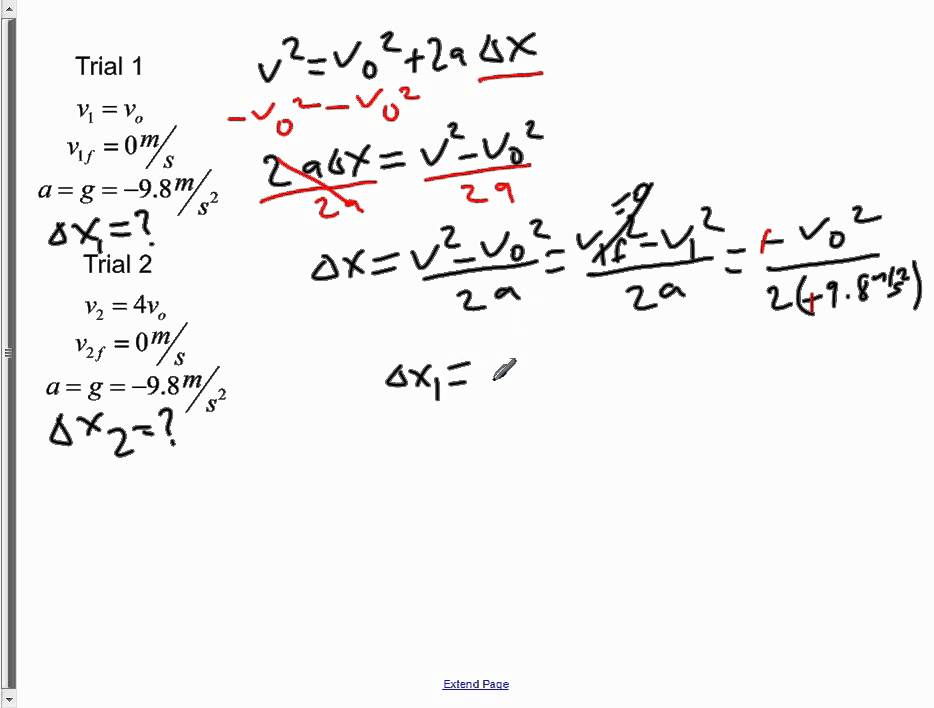 Trial 1
v₁ = vₒ
v₁f = 0 m/s
a = g = −9.8 m/s²
Δx₁ = ?
Trial 2
v₂ = 4vₒ
v₂f = 0 m/s
a = g = −9.8 m/s²
Δx₂ = ?
v² = v₀² + 2a Δx
−v₀² −v₀²
2aΔx/2a = (v² − v₀²)/2a
=0
Δx = (v² − v₀²)/2a = (v₁f² − v₁²)/2a = −v₀²/2(−9.8 m/s²)
Δx₁ =
Extend Page